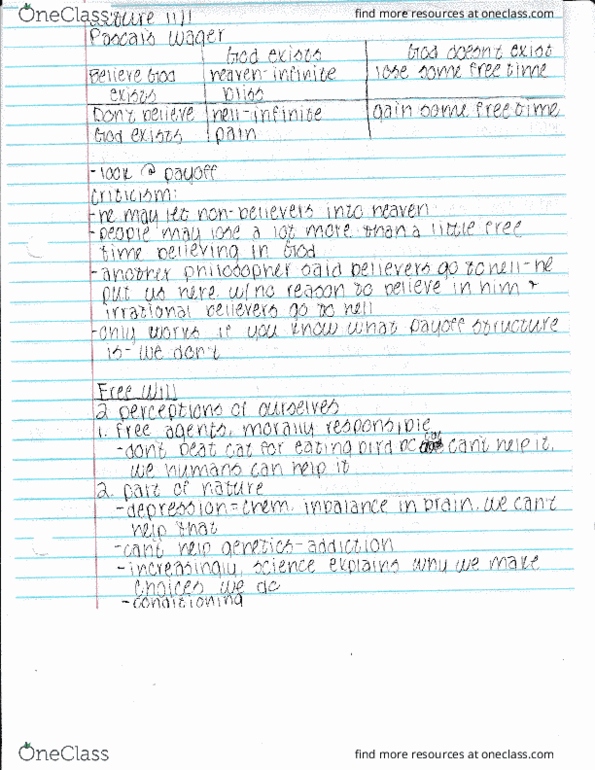 OneClass
find more resources at oneclass.com
Lecture 11/1
Pascals wager
God exists God doesn't exist
Believe God heaven-infinite lose some free time
exists bliss
Don't believe hell-infinite gain some free time
God exists pain
-look @ payoff
criticism:
-he may let non-believers into heaven
-people may lose a lot more than a little free
time believing in God
-another philosopher said believers go to hell-he
put us here w/no reason to believe in him +
irrational believers go to hell
-only works if you know what payoff structure
is-we don't
Free Will
2 perceptions of ourselves
1. free agents, morally responsible
-dont beat cat for eating bird bc cat cant help it,
we humans can help it
2. part of nature
-depression=chem. inbalance in brain, we can't
help that
-cant help genetics-addiction
-increasingly, science explains why we make
choices we do
-conditioning
OneClass
find more resources at oneclass.com